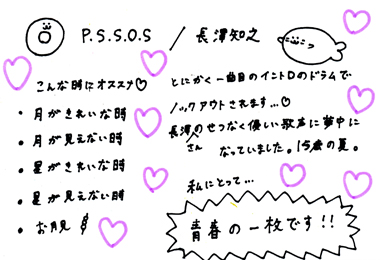 P.S.S.O.S / 長澤知之
こんな時にオススメ♡
・月がきれいな時
・月が見えない時
・星がきれいな時
・星が見えない時
・お月見
とにかく一曲目のイントロのドラムで
ノックアウトされます…♡
長澤さんのせつなく優しい歌声に夢中に
なっていました。15歳の夏。
私にとって…
青春の一枚です!!